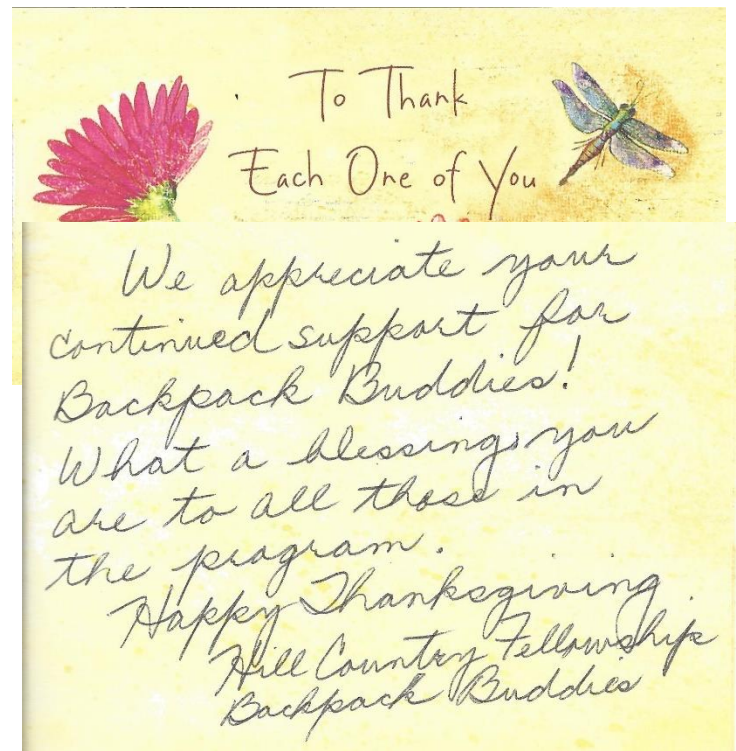 To Thank
Each One of You
We appreciate your
continued support for
Backpack Buddies!
What a blessings you
are to all those in
the program.
Happy Thanksgiving.
Hill Country Fellowship
Backpack Buddies